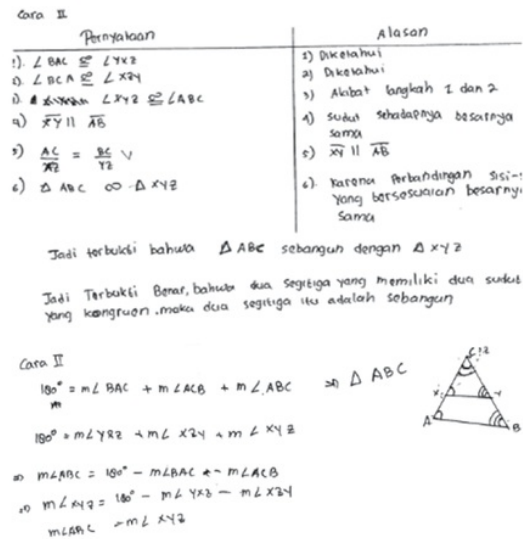 Cara II
Pernyataan
Alasan
1). ∠ BAC ≅ ∠ YXZ
1) Diketahui
2). ∠ BCA ≅ ∠ XZY
2) Diketahui
3). ∠ XYZ ≅ ∠ABC
3) Akibat langkah 1 dan 2
4) XY || AB
4) sudut sehadapnya besarnya sama
5) AC/XZ = BC/YZ V
5) XY || AB
6) △ ABC ∞ △ XYZ
6). Karena Perbandingan sisi-
yang bersesuaian besarny
sama
Jadi terbukti bahwa △ ABC sebangun dengan △ XYZ
Jadi Terbukti Benar, bahwa dua segitiga yang memiliki dua sudut
yang kongruen .maka dua segitiga itu adalah sebangun
Cara II
180° = m∠ BAC + m∠ACB + m∠.ABC ⇒ △ ABC
m
180° = m∠ YXZ + m∠ XZY + m∠ XYZ
⇒ m∠ABC = 180° - m∠BAC - m∠ACB
⇒ m∠XYZ = 180° - m∠ YXZ - m∠XZY
m∠ABC = m∠ XYZ
C:Z
X
Y
A
B